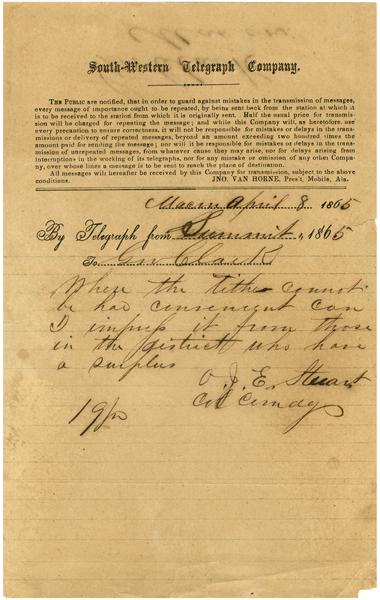 South-Western Telegraph Company.
THE PUBLIC are notified, that in order to guard against mistakes in the transmission of messages,
every message of importance ought to be repeated, by being sent back from the station at which it
is to be received to the station from which it is originally sent. Half the usual price for transmis-
sion will be charged for repeating the message; and while this Company will, as heretofore, use
every precaution to ensure correctness, it will not be responsible for mistakes or delays in the trans-
missions or delivery of repeated messages, beyond an amount exceeding two hundred times the
amount paid for sending the message; nor will it be responsible for mistakes or delays in the trans-
mission of unrepeated messages, from whatever cause they may arise, nor for delays arising from
interruptions in the working of its telegraphs, nor for any mistake or omission of any other Company,
over whose lines a message is to be sent to reach the place of destination.
All messages will hereafter be received by this Company for transmission, subject to the above
conditions. JNO. VAN HORNE, Pres't, Mobile, Ala.
Macon April 8 1865
By Telegraph from Summit, 1865
To Gov Clark
Where the tithe cannot
be had convenient can
I impress it from those
in the district who have
a surplus
O. J. E. Stuart
Col Comdg
19/